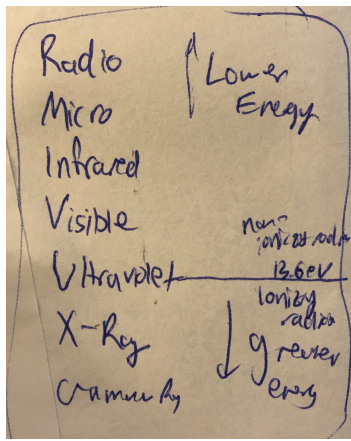 Radio
Micro
Infrared
Visible
Ultravolet
X-Ray
Gammu Ray
Lower
Eneregy
non-
ionizat radia
13.6eV
Ionizing
radia
greater
energy